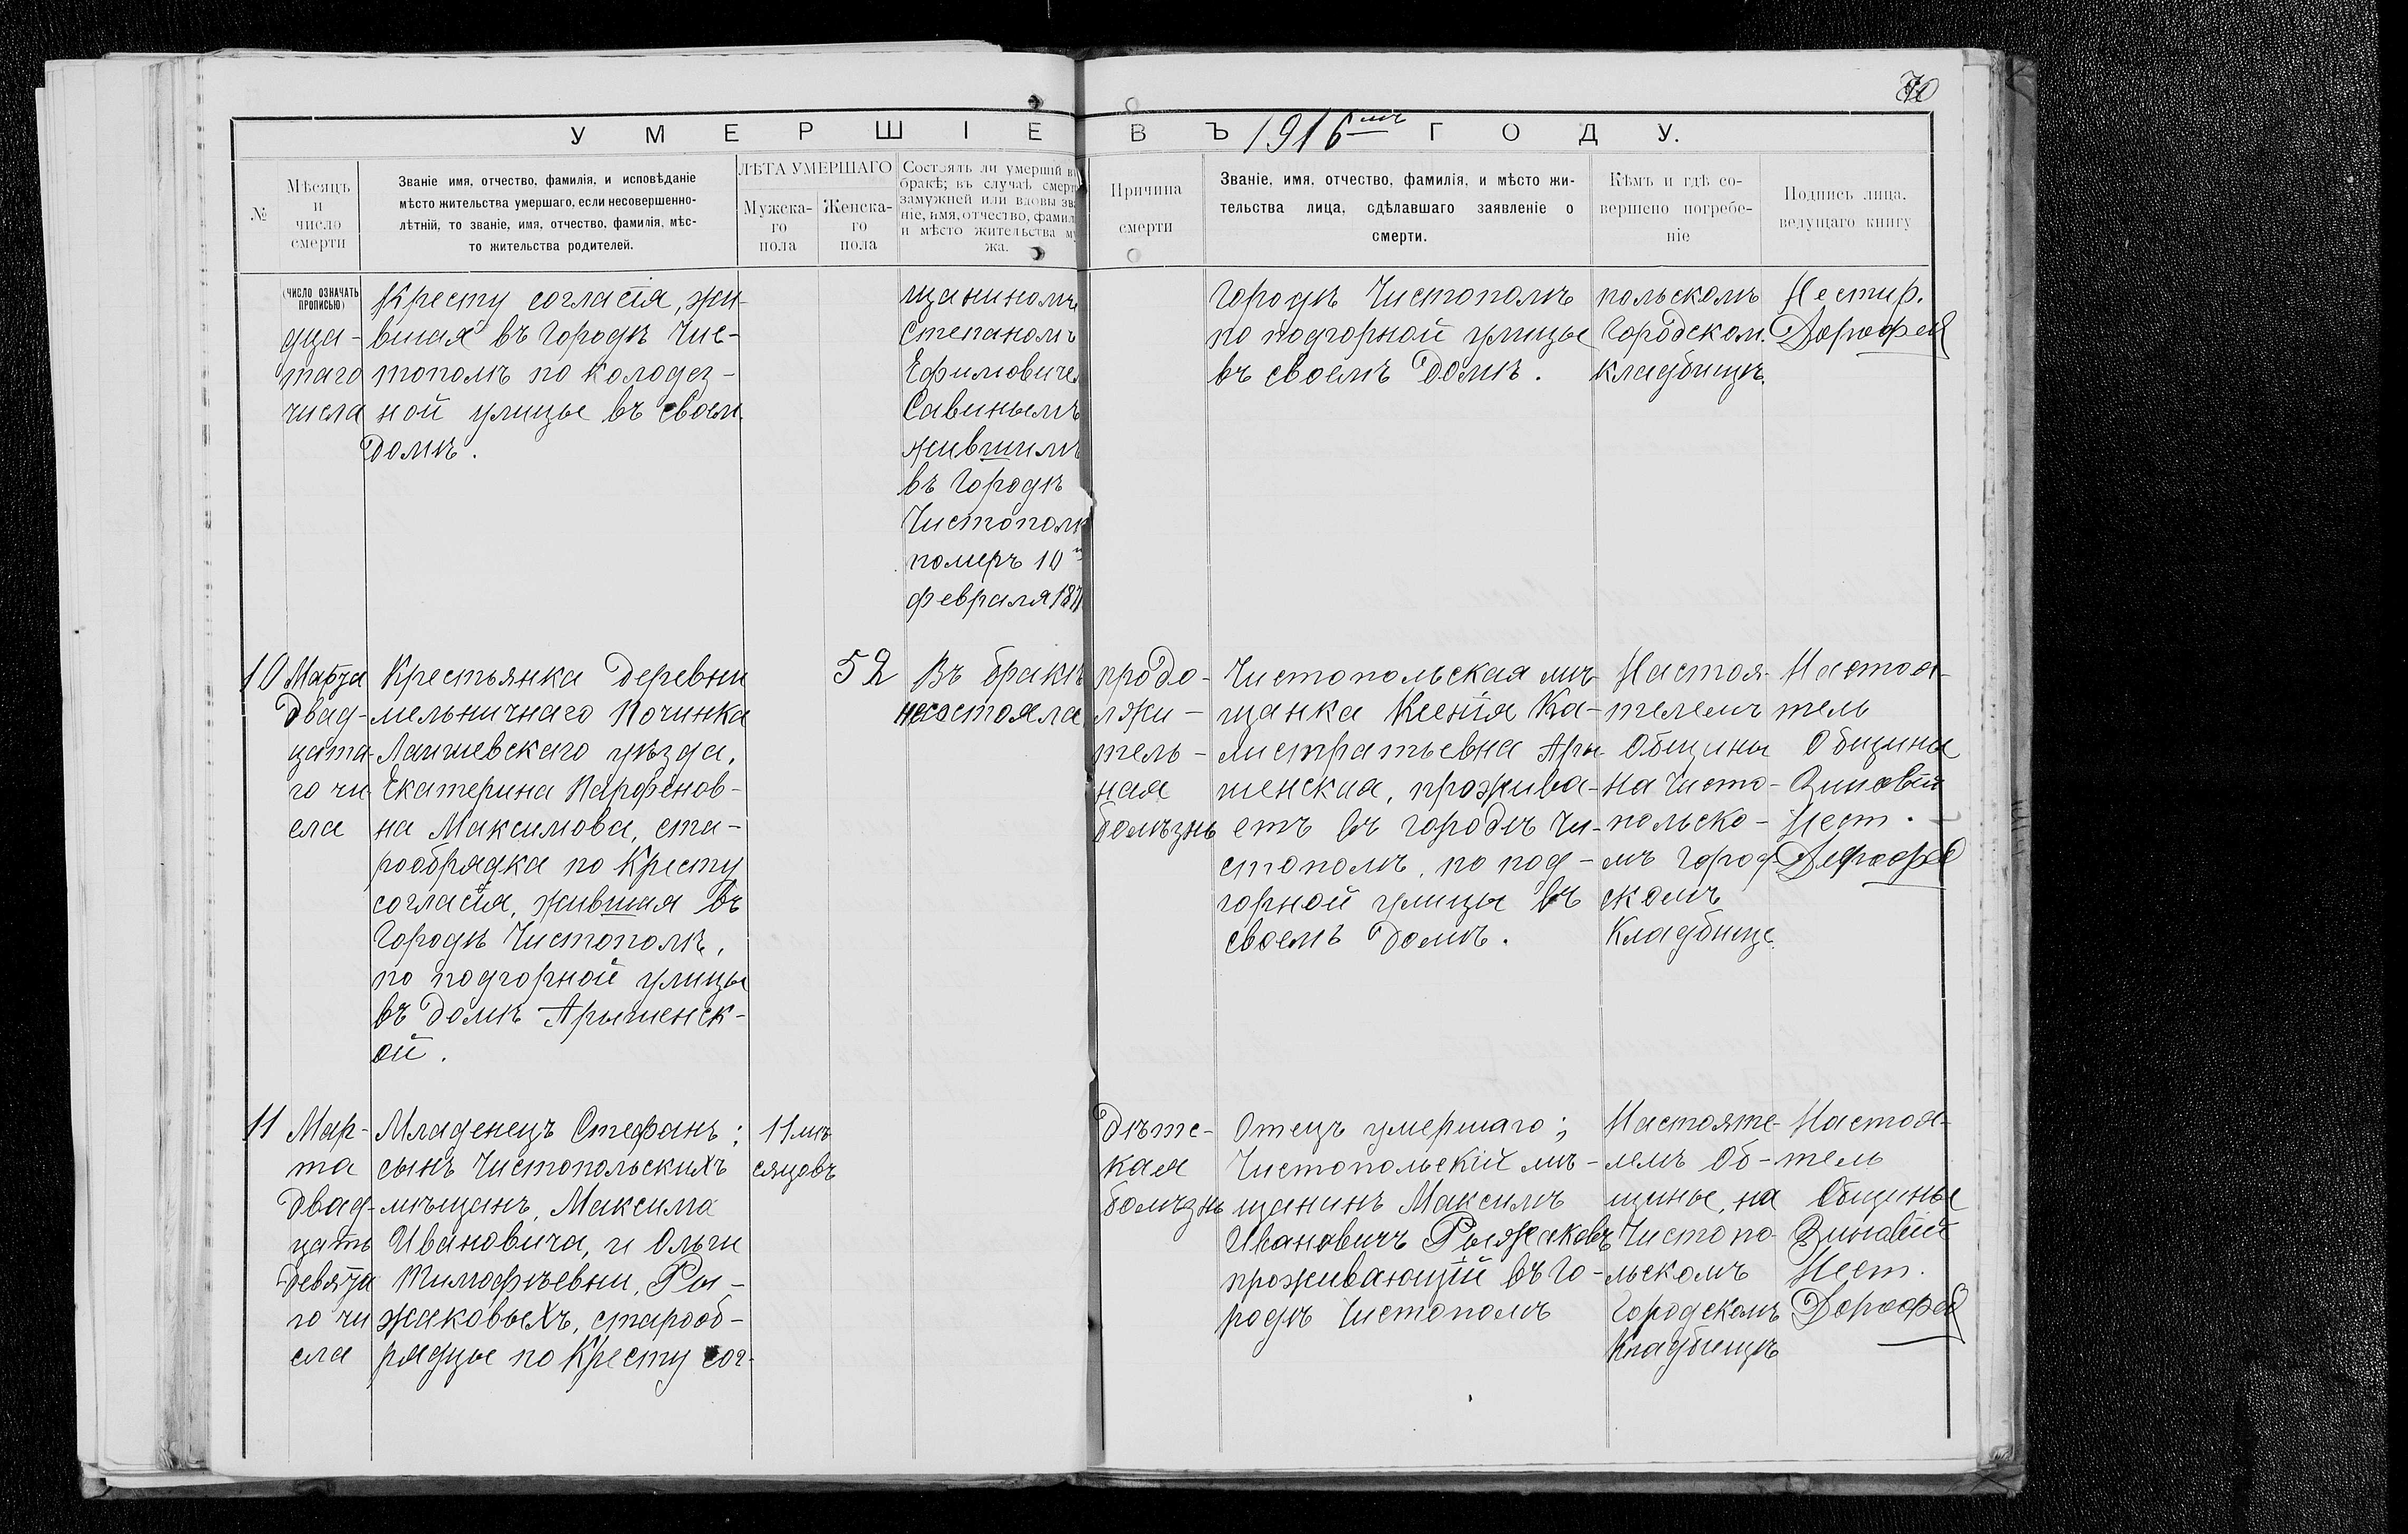 70
УМЕРШІЕ ВЪ 1916мъ ГОДУ.
№
Мѣсяцъ
и
число
смерти
Званіе имя, отчество, фамилія, и исповѣданіе
мѣсто жительства умершаго, если несовершенно-
лѣтній, то званіе, имя, отчество, фамилія, мѣс-
то жительства родителей.
ЛѢТА УМЕРШАГО
Мужска-
го
пола
Женска-
го
пола
Состоялъ ли умершій въ
бракѣ; въ случаѣ смерти
замужней или вдовы зва
ніе, имя, отчество, фамил
и мѣсто жительства му
жа.
Причина
смерти
Званіе, имя, отчество, фамилія, и мѣсто жи-
тельства лица, сдѣлавшаго заявленіе о
смерти.
Кѣмъ и гдѣ со-
вершено погребе-
ніе
Подпись лица,
ведущаго книгу
(ЧИСЛО ОЗНАЧАТЬ
ПРОПИСЬЮ)
дца-
таго
числа
Кресту согласія, жи-
вшая въ Городѣ Чис-
тополѣ по колодез-
ной улицы въ своем
домѣ.
щаниномъ
Степаномъ
Ефимовичем
Савинымъ
жившимъ
въ Городѣ
Чистополѣ
померъ 10
февраля 187
Городѣ Чистополѣ
по подгорной улицы
въ своемъ домѣ.
польскомъ
Городском.
кладбищѣ.
Нестир.
Дорофей
10
Марта
двад-
цата-
го чи
сла
Крестьянка деревни
мельничнаго Починка
Лаишевскаго уѣзда,
Екатерина Парфенов-
на Максимова, ста-
рообрядка по Кресту
согласія, жившая въ
Городѣ Чистополѣ,
по подгорной улицы
въ домѣ Арышенск-
ой.
52
Въ бракѣ
несостояла
продо-
лжи-
тель-
ная
болѣзнь
Чистопольская мѣ-
щанка Ксенія Ка-
листратьевна Ары
шенская, прожива-
етъ въ городѣ Чи-
стополѣ, по под-
горной улицы въ
своемъ домѣ.
Настоя-
телемъ
Общины
на Чисто-
польско-
мъ город
скомъ
Кладбище.
Настоя-
тель
Общины
Зиновій
Нест.
Дорофей
11
Мар-
та
двад-
цать
девята
го чи
сла
Младенецъ Стефанъ;
сынъ Чистопольскихъ
мѣщанъ, Максима
Ивановича, и Ольги
Тимофѣевни, Ры-
жаковыхъ, старооб-
рядцы по Кресту сог-
11 мѣ
сяцовъ
дѣтс-
кая
болѣзнь
Отецъ умершаго;
Чистопольскій мѣ-
щанинъ Максимъ
Ивановичъ Рыжаковъ
проживающій въ Го-
родѣ Чистополѣ
Настояте-
лемъ Об-
щины, на
Чистопо-
льскомъ
Городскомъ
Кладбищѣ
Настоя-
тель
Общины
Зиновій
Нест.
Дорофей